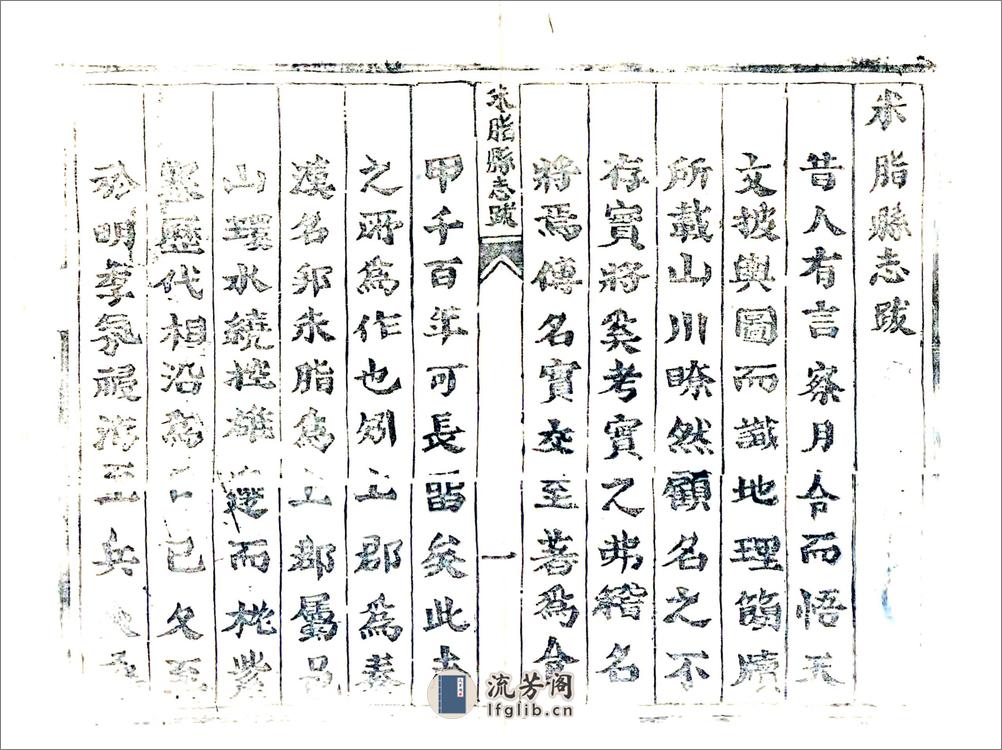 米脂縣志跋
昔人有言察月令而悟天
文披輿圖而識地理簡牘
所載山川瞭然顧名之不
存實將奚考實之弗稽名
將焉傳名實交至著爲令
米脂縣志跋
一
甲千百年可長留矣此志
之所爲作也矧上郡爲秦
漢名邦米脂爲上郡屬邑
山環水繞控雄邊而枕紫
塞歷代相沿爲日已久至
於明季氛祲洊至兵
流芳阁
lfglib.cn